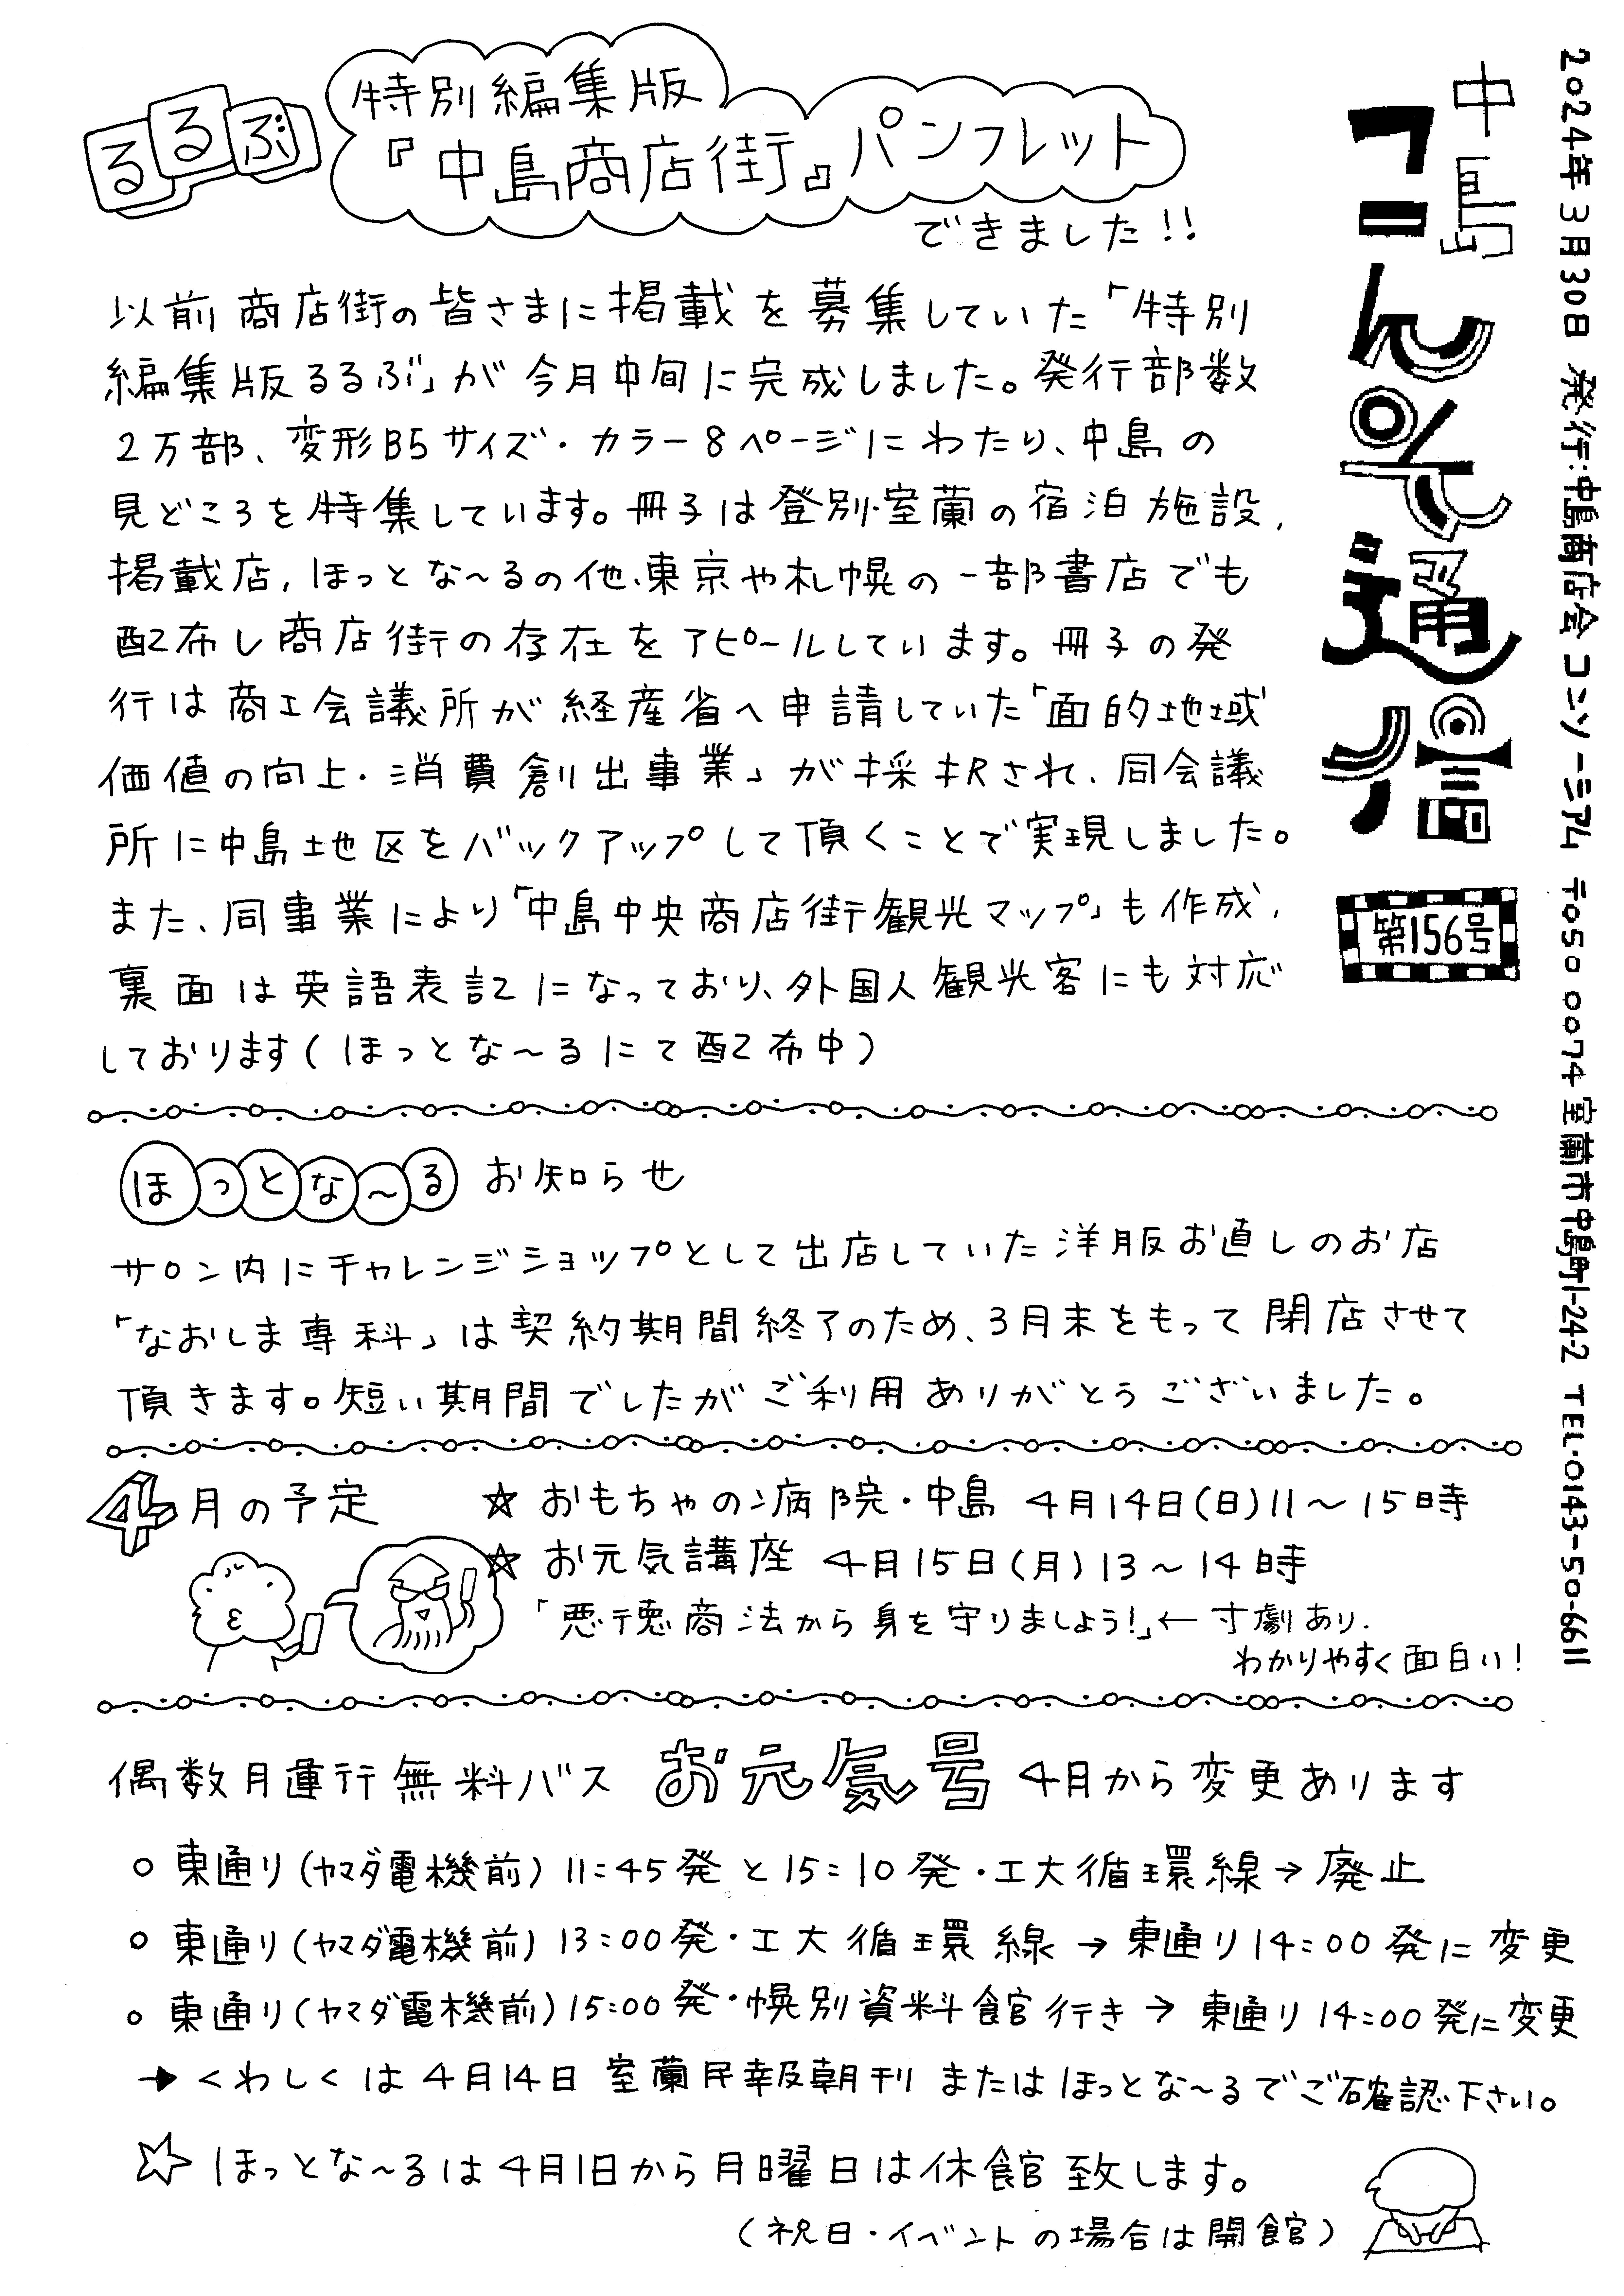 2024年3月30日 発行:中島商店会コンソーシアム 〒050 0074 室蘭市中島町1-24-2 TEL・0143-50-6611
中島
こんそ通信
第156号
るるぶ
特別編集版
『中島商店街』パンフレット
できました!!
以前商店街の皆さまに掲載を募集していた「特別
編集版るるぶ」が今月中旬に完成しました。発行部数
2万部、変形B5サイズ・カラー8ページにわたり、中島の
見どころを特集しています。冊子は登別・室蘭の宿泊施設、
掲載店、ほっとな〜るの他、東京や札幌の一部書店でも
配布し商店街の存在をアピールしています。冊子の発
行は商工会議所が経産省へ申請していた「面的地域
価値の向上・消費創出事業」が採択され、同会議
所に中島地区をバックアップして頂くことで実現しました。
また、同事業により「中島中央商店街観光マップ」も作成、
裏面は英語表記になっており、外国人観光客にも対応
しております(ほっとな〜るにて配布中)
ほっとな〜る お知らせ
サロン内にチャレンジショップとして出店していた洋服お直しのお店
「なおしま専科」は契約期間終了のため、3月末をもって閉店させて
頂きます。短い期間でしたがご利用ありがとうございました。
4月の予定
☆ おもちゃの病院・中島 4月14日(日)11〜15時
☆ お元気講座 4月15日(月)13〜14時
「悪徳商法から身を守りましょう!」← 寸劇あり.
わかりやすく面白い!
偶数月運行無料バス お元気号 4月から変更あります
○ 東通り(ヤマダ電機前)11:45発と15:10発・工大循環線→廃止
○ 東通り(ヤマダ電機前)13:00発・工大循環線→東通り14:00発に変更
○ 東通り(ヤマダ電機前)15:00発・幌別資料館行き→東通り14:00発に変更
→くわしくは4月14日 室蘭民報朝刊またはほっとな〜るでご確認下さい。
☆ ほっとな〜るは4月1日から月曜日は休館致します。
(祝日・イベントの場合は開館)